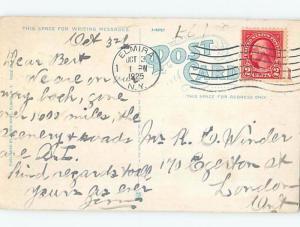 THIS SPACE FOR WRITING MESSAGES
Oct 3
ELMIRA
OCT 3
1 PM
1925
N.Y.
POST
CARD
THIS SPACE FOR ADDRESS ONLY
Dear Bert
We are on
way back, gone
over 1000 miles, the
scenery & roads
are
Kind regards to all
yours as ever
Jim
Mr A. C. Winder
170 Egerton St
London
Ont